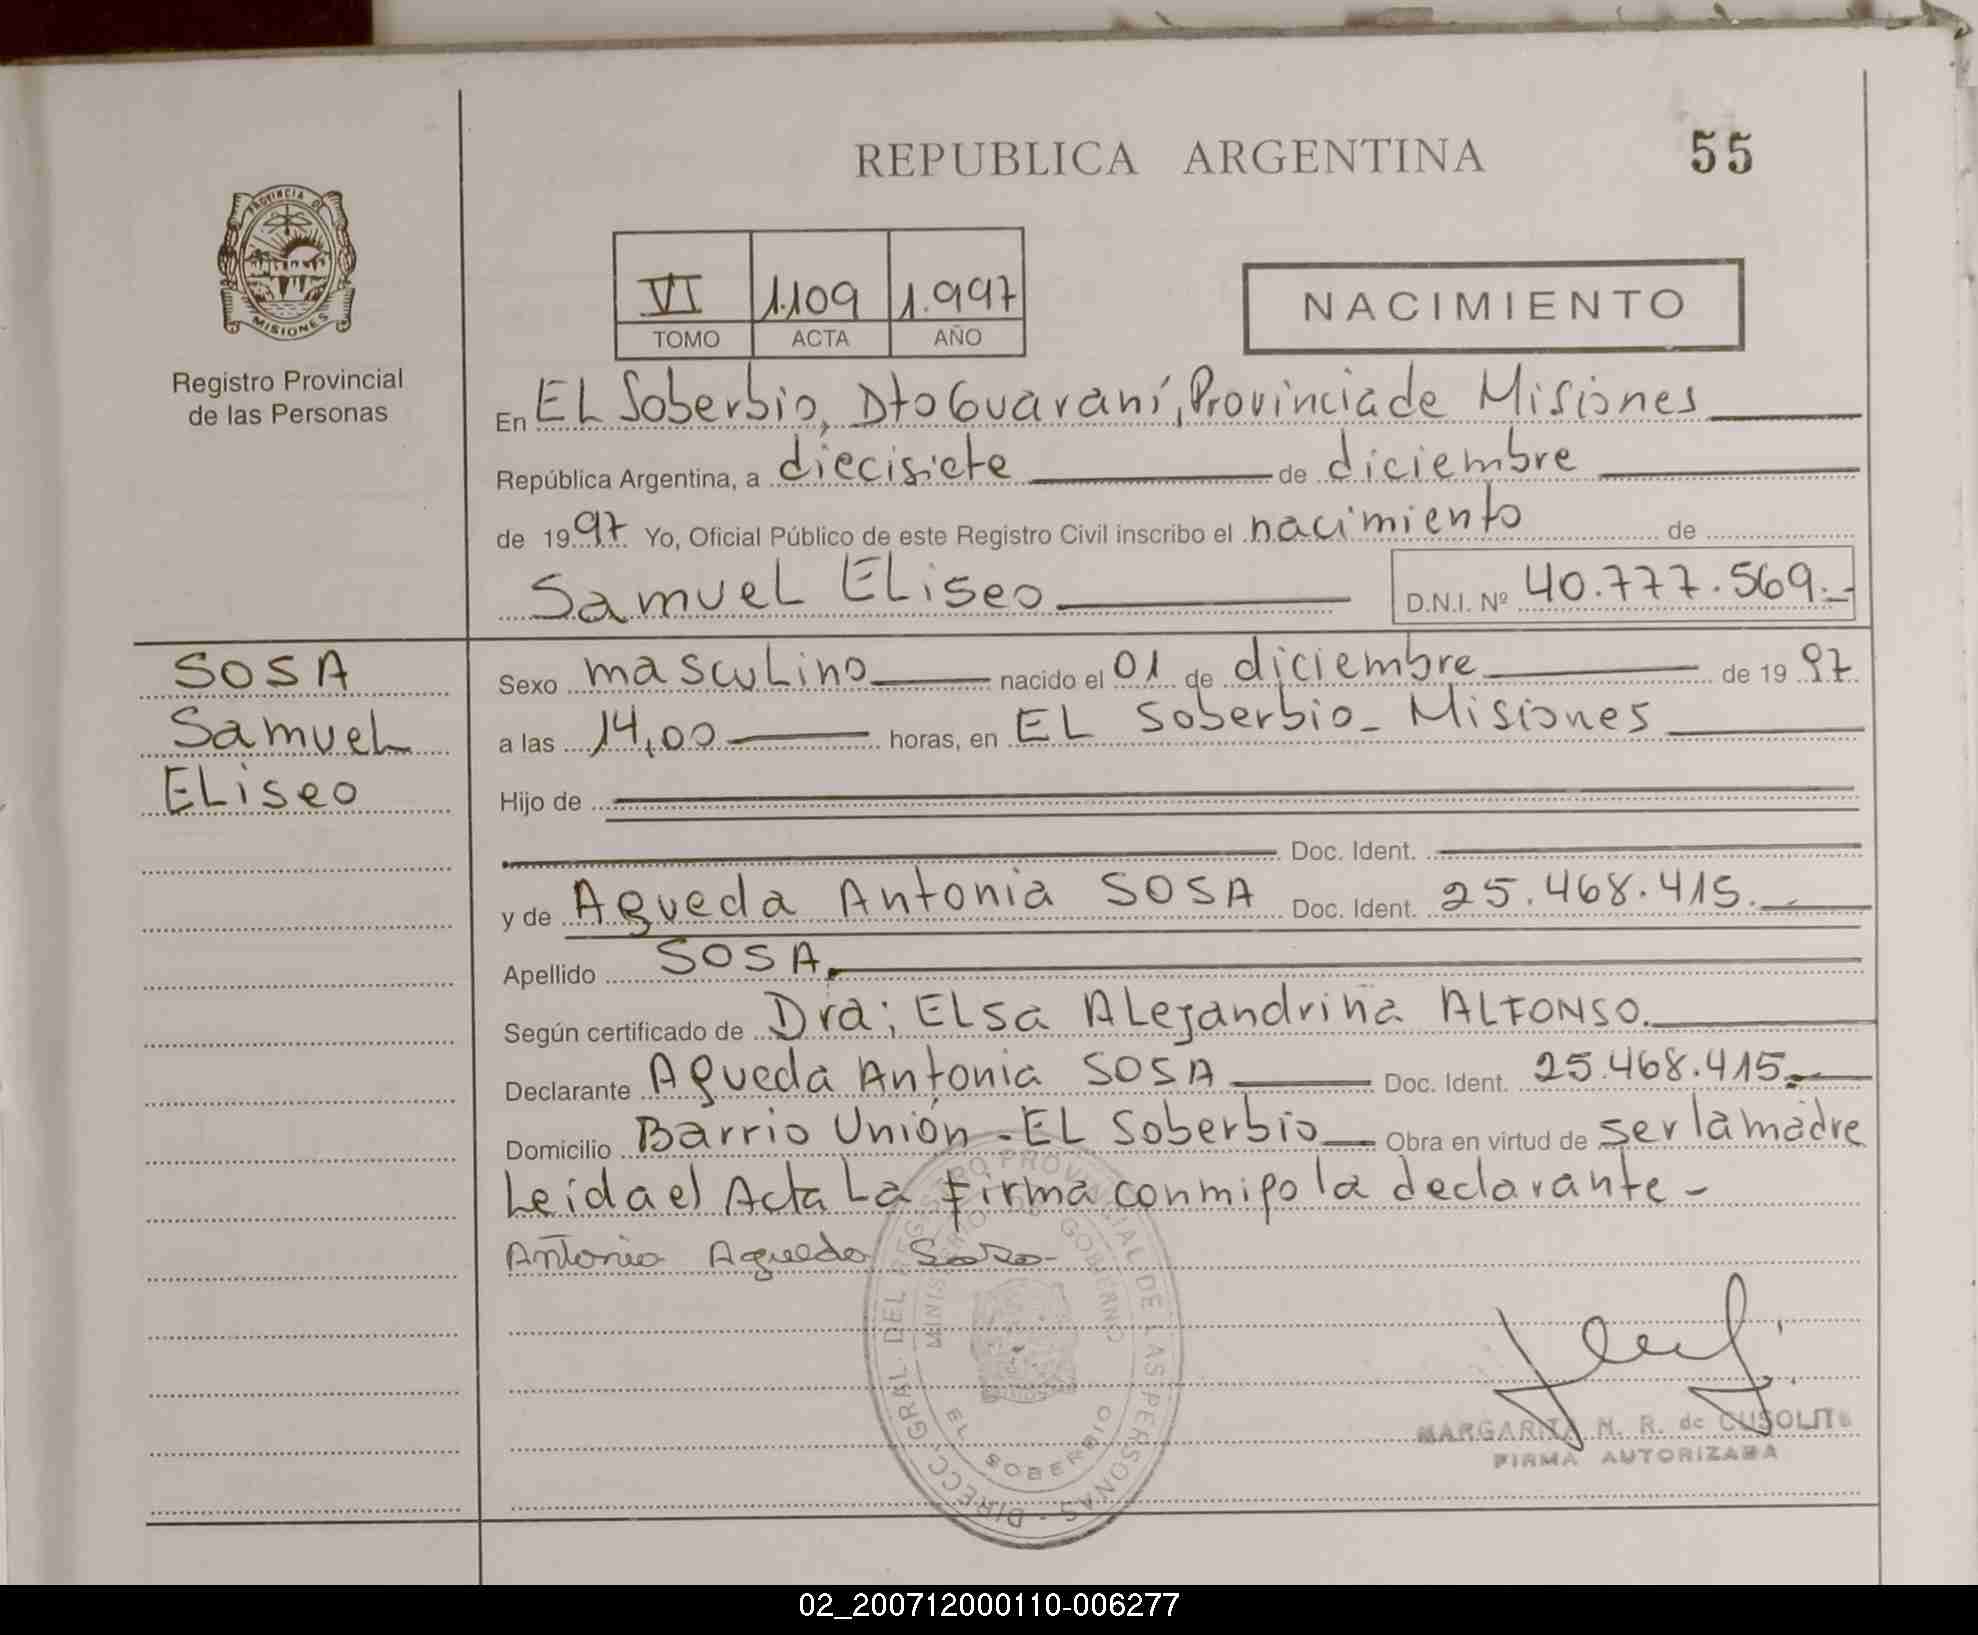 REPUBLICA ARGENTINA
55
PROVINCIA DE
MISIONES
Registro Provincial
de las Personas
VI 1.109 1.997
TOMO ACTA AÑO
NACIMIENTO
En EL Soberbio, Dto Guaraní, Provincia de Misiones
República Argentina, a diecisiete de diciembre
de 1997 Yo, Oficial Público de este Registro Civil inscribo el nacimiento de
Samuel Eliseo D.N.I. Nº 40.777.569.-
SOSA
Samuel
Eliseo
Sexo masculino nacido el 01 de diciembre de 1997
a las 14,00 horas, en EL Soberbio - Misiones
Hijo de
Doc. Ident.
y de Agueda Antonia SOSA Doc. Ident. 25.468.415.-
Apellido SOSA.
Según certificado de Dra; Elsa Alejandrina ALFONSO.
Declarante Agueda Antonia SOSA Doc. Ident. 25.468.415.-
Domicilio Barrio Unión - EL Soberbio Obra en virtud de ser la madre
Leida el Acta La firma conmigo la declarante -
Antonia Agueda Sosa
DIRECC. GRAL. DEL REGISTRO PROVINCIAL DE LAS PERSONAS
MINISTERIO DE GOBIERNO
EL SOBERBIO
MARGARITA N. R. de CUSOLITO
FIRMA AUTORIZADA
02_200712000110-006277